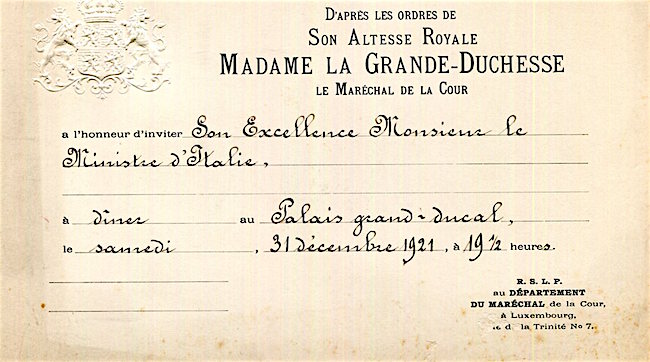 D'APRÈS LES ORDRES DE
SON ALTESSE ROYALE
MADAME LA GRANDE-DUCHESSE
LE MARÉCHAL DE LA COUR
a l'honneur d'inviter Son Excellence Monsieur le
Ministre d'Italie,
à dîner au Palais grand-ducal,
le samedi, 31 décembre 1921, à 19 1/2 heures.
R. S. L. P.
au DÉPARTEMENT
DU MARÉCHAL de la Cour,
à Luxembourg,
la Trinité No 7.